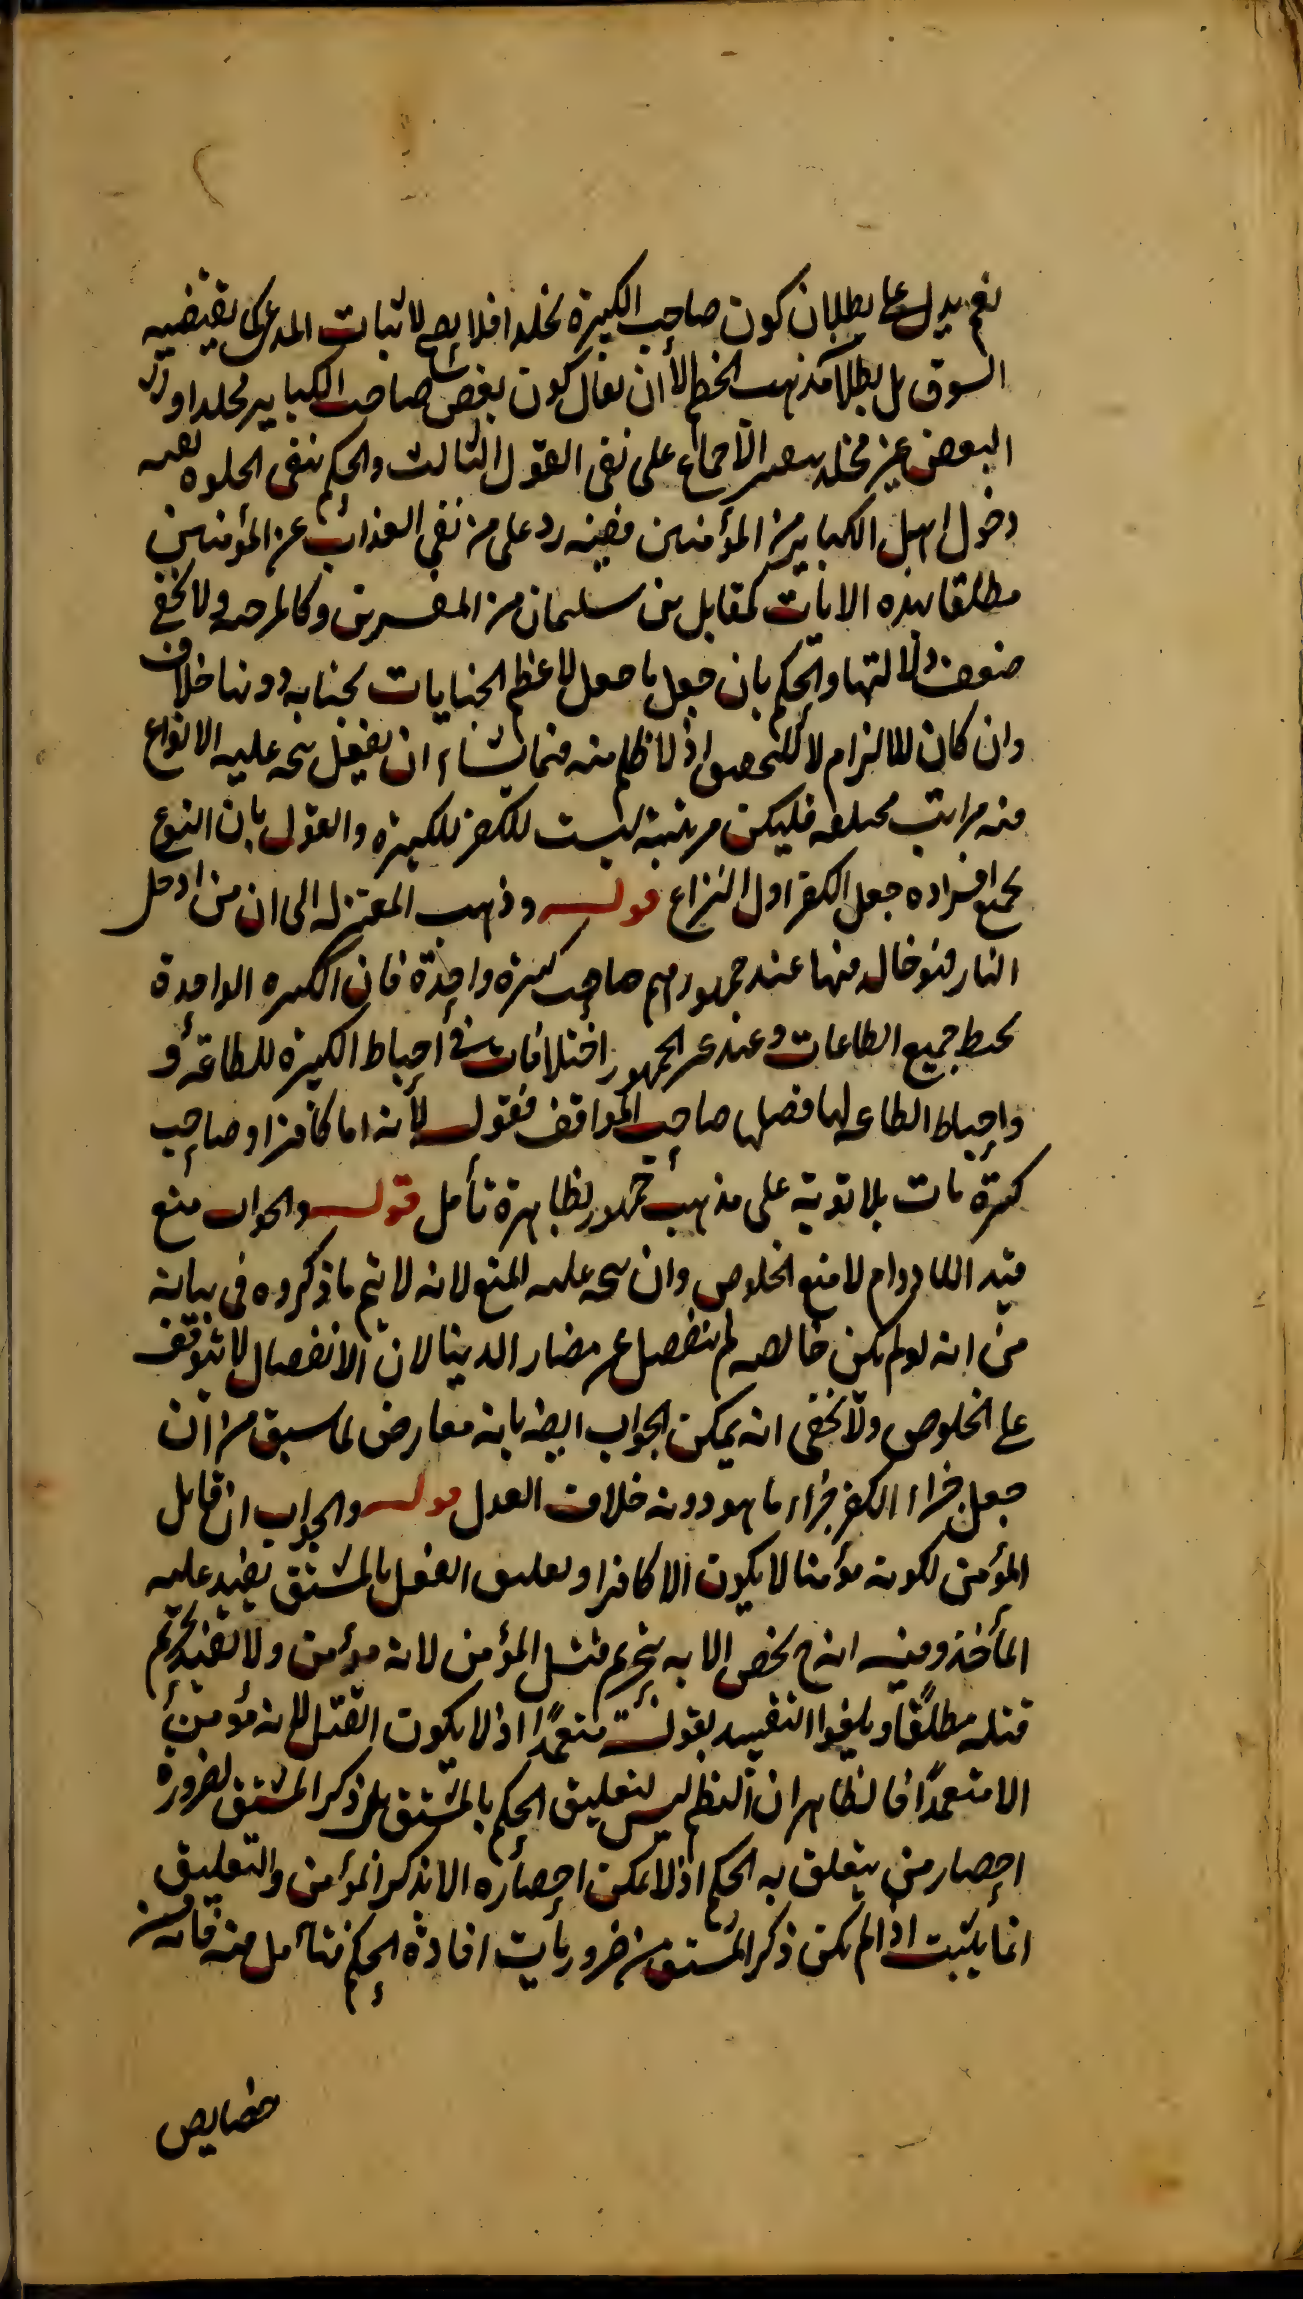 نعم يدل على بطلان كون صاحب الكبيرة مخلدا فلا يصح لاثبات المدعى كما يقتضيه
السوق بل بطلان مذهب الخصم الا ان يقال كون بعض صاحب الكباير مخلدا دون
البعض غير مخلد ينفيه الاجماع على نفى القول الثالث والحكم بنفى الخلود بعد
دخول اهل الكباير من المؤمنين ففيه رد على من نفى العذاب عن المؤمنين
مطلقا بهذه الايات كمقاتل بن سليمان من المفسرين وكالمرجئة ولا يخفى
ضعف دلالتها والحكم بان جعل ما جعل لاعظم الجنايات لجناية دونها خلاف
وان كان للالزام لا للتحقيق اذ لا ظلم منه فيما يشاء ان يفعل يتجه عليه الانواع
منه مراتب مختلفة فليكن مرتبة ليست للكفر للكبيرة والقول بان النوع
بجميع افراده جعل الكفر اول النزاع قوله وذهب المعتزلة الى ان من ادخل
النار فهو خالد فيها عند جمهورهم صاحب كبيرة واحدة فان الكبيرة الواحدة
تحبط جميع الطاعات وعند غير الجمهور اختلافات في احباط الكبيرة للطاعة و
واحباط الطاعة لها فصلها صاحب المواقف فقوله لانه اما كافر او صاحب
كبيرة مات بلا توبة على مذهب جمهور نظاهرة تأمل قوله والجواب منع
قيد الدوام لا منع الخلوص وان يتجه عليه المنع لانه لا يتم ما ذكروه فى بيانه
من انه لو لم يكن خالصة لم ينفصل عن مضار الدنيا لان الانفصال لا يتوقف
على الخلوص ولا يخفى انه يمكن الجواب ايضا بانه معارض لما سبق من ان
جعل جزاء الكفر جزاء ما هو دونه خلاف العدل قوله والجواب ان قاتل
المؤمن لكونه مؤمنا لا يكون الا كافرا وتعليق الفعل بالمشتق يفيد علية
المأخذ وفيه انه ح يخص الاية بتحريم قتل المؤمن لانه مؤمن ولا تفيد تحريم
قتله مطلقا ويلغوا التقييد بقوله متعمدا اذ لا يكون القتل لانه مؤمن
الا متعمدا فالظاهر ان النظم ليس لتعليق الحكم بالمشتق بل ذكر المشتق لضرورة
احضار من يتعلق به الحكم اذ لا يمكن احضاره الا بذكر المؤمن والتعليق
انما يثبت اذا لم يكن ذكر المشتق من ضروريات افادة الحكم فتأمل فيه فانه من
خصايص